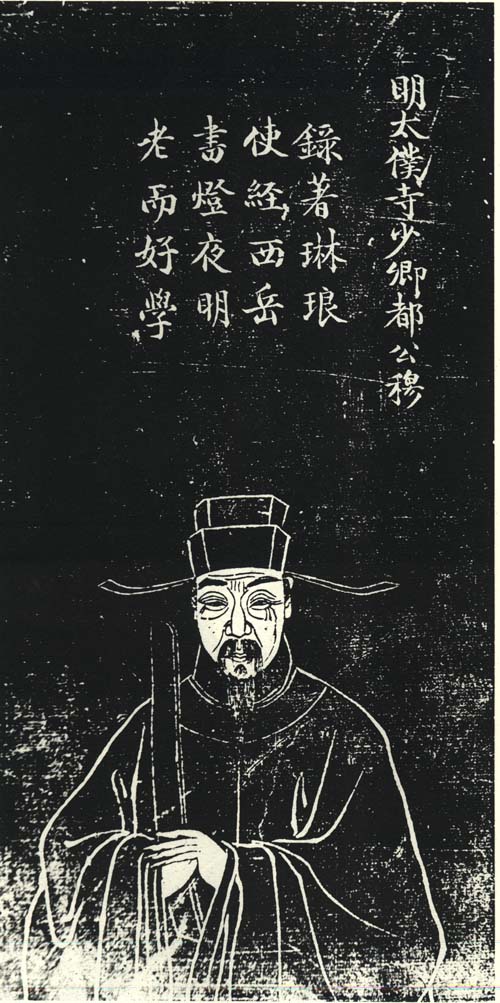 明太僕寺少卿都公穆
錄著琳琅
使經西岳
書燈夜明
老而好學